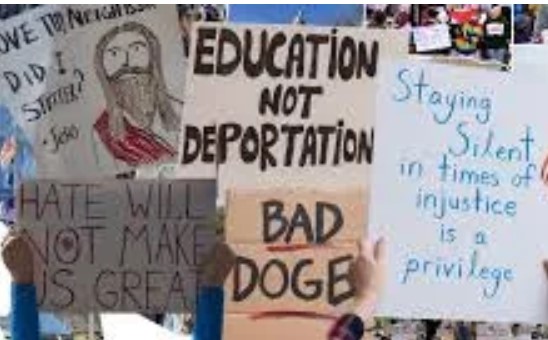 LOVE THY NEIGHBOR
DID I
STUTTER?
EDUCATION
NOT
DEPORTATION
Staying
Silent
in times of
injustice
is a
privilege
HATE WILL
NOT MAKE
US GREAT
BAD
DOGE